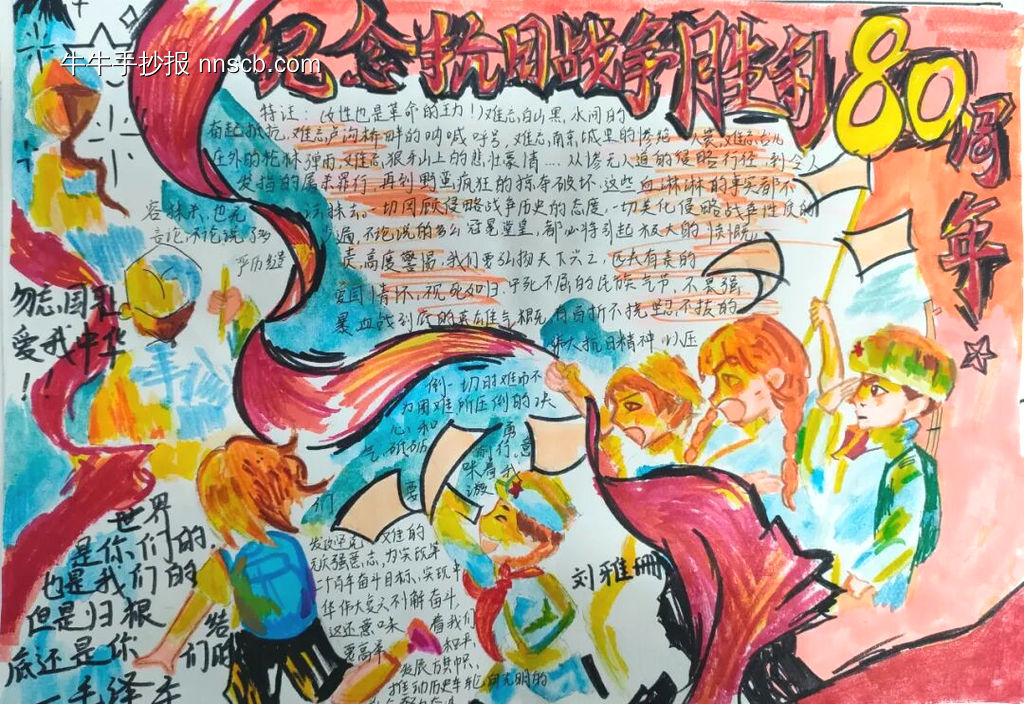 纪念抗日战争胜利80周年
牛牛手抄报 nnscb.com
难忘白山黑水间的
奋起抵抗,难忘卢沟桥畔的呐喊呼号,难忘南京城里的
狼牙山上的悲壮豪情……从惨无人道的侵略行径,到令人
发指的屠杀罪行,再到野蛮疯狂的掠夺破坏,这些血淋淋的事实都不
容抹杀,也无法抹去。一切罔顾侵略战争历史的态度,一切美化侵略战争性质的
言论,不论说了多少遍,不论说的多么冠冕堂皇,都必将引起极大的愤慨,
责,高度警惕,我们要弘扬天下
爱国情怀,视死如归、宁死不屈的民族气节,不畏强
暴血战到底的英雄气概,百折不挠坚忍不拔的
伟大抗日精神,以压
倒一切的难而不
为困难所压倒的决
心和勇
气,砥砺前行。意
味着我
们要激
难的
为实现第
二个百年奋斗目标,实现中
华伟大复兴不懈奋斗,
这还意味着我们
要高举和平、
发展
推动历史车轮向光明的
勿忘国耻
爱我中华
!!
世界
是你们的,
也是我们的
但是归根结
底还是你们的
—毛泽东
刘雅珊